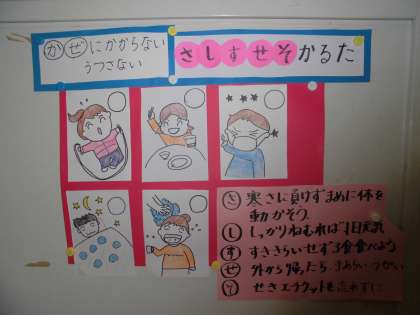 かぜにかからない
うつさない
さしすせそかるた
さ 寒さに負けずまめに体を
動かそう
し しっかりねむれば1日元気
す すききらいせず3食食べよう
せ 外から帰ったら 手あらい・うがい
そ せきエチケットも忘れずに